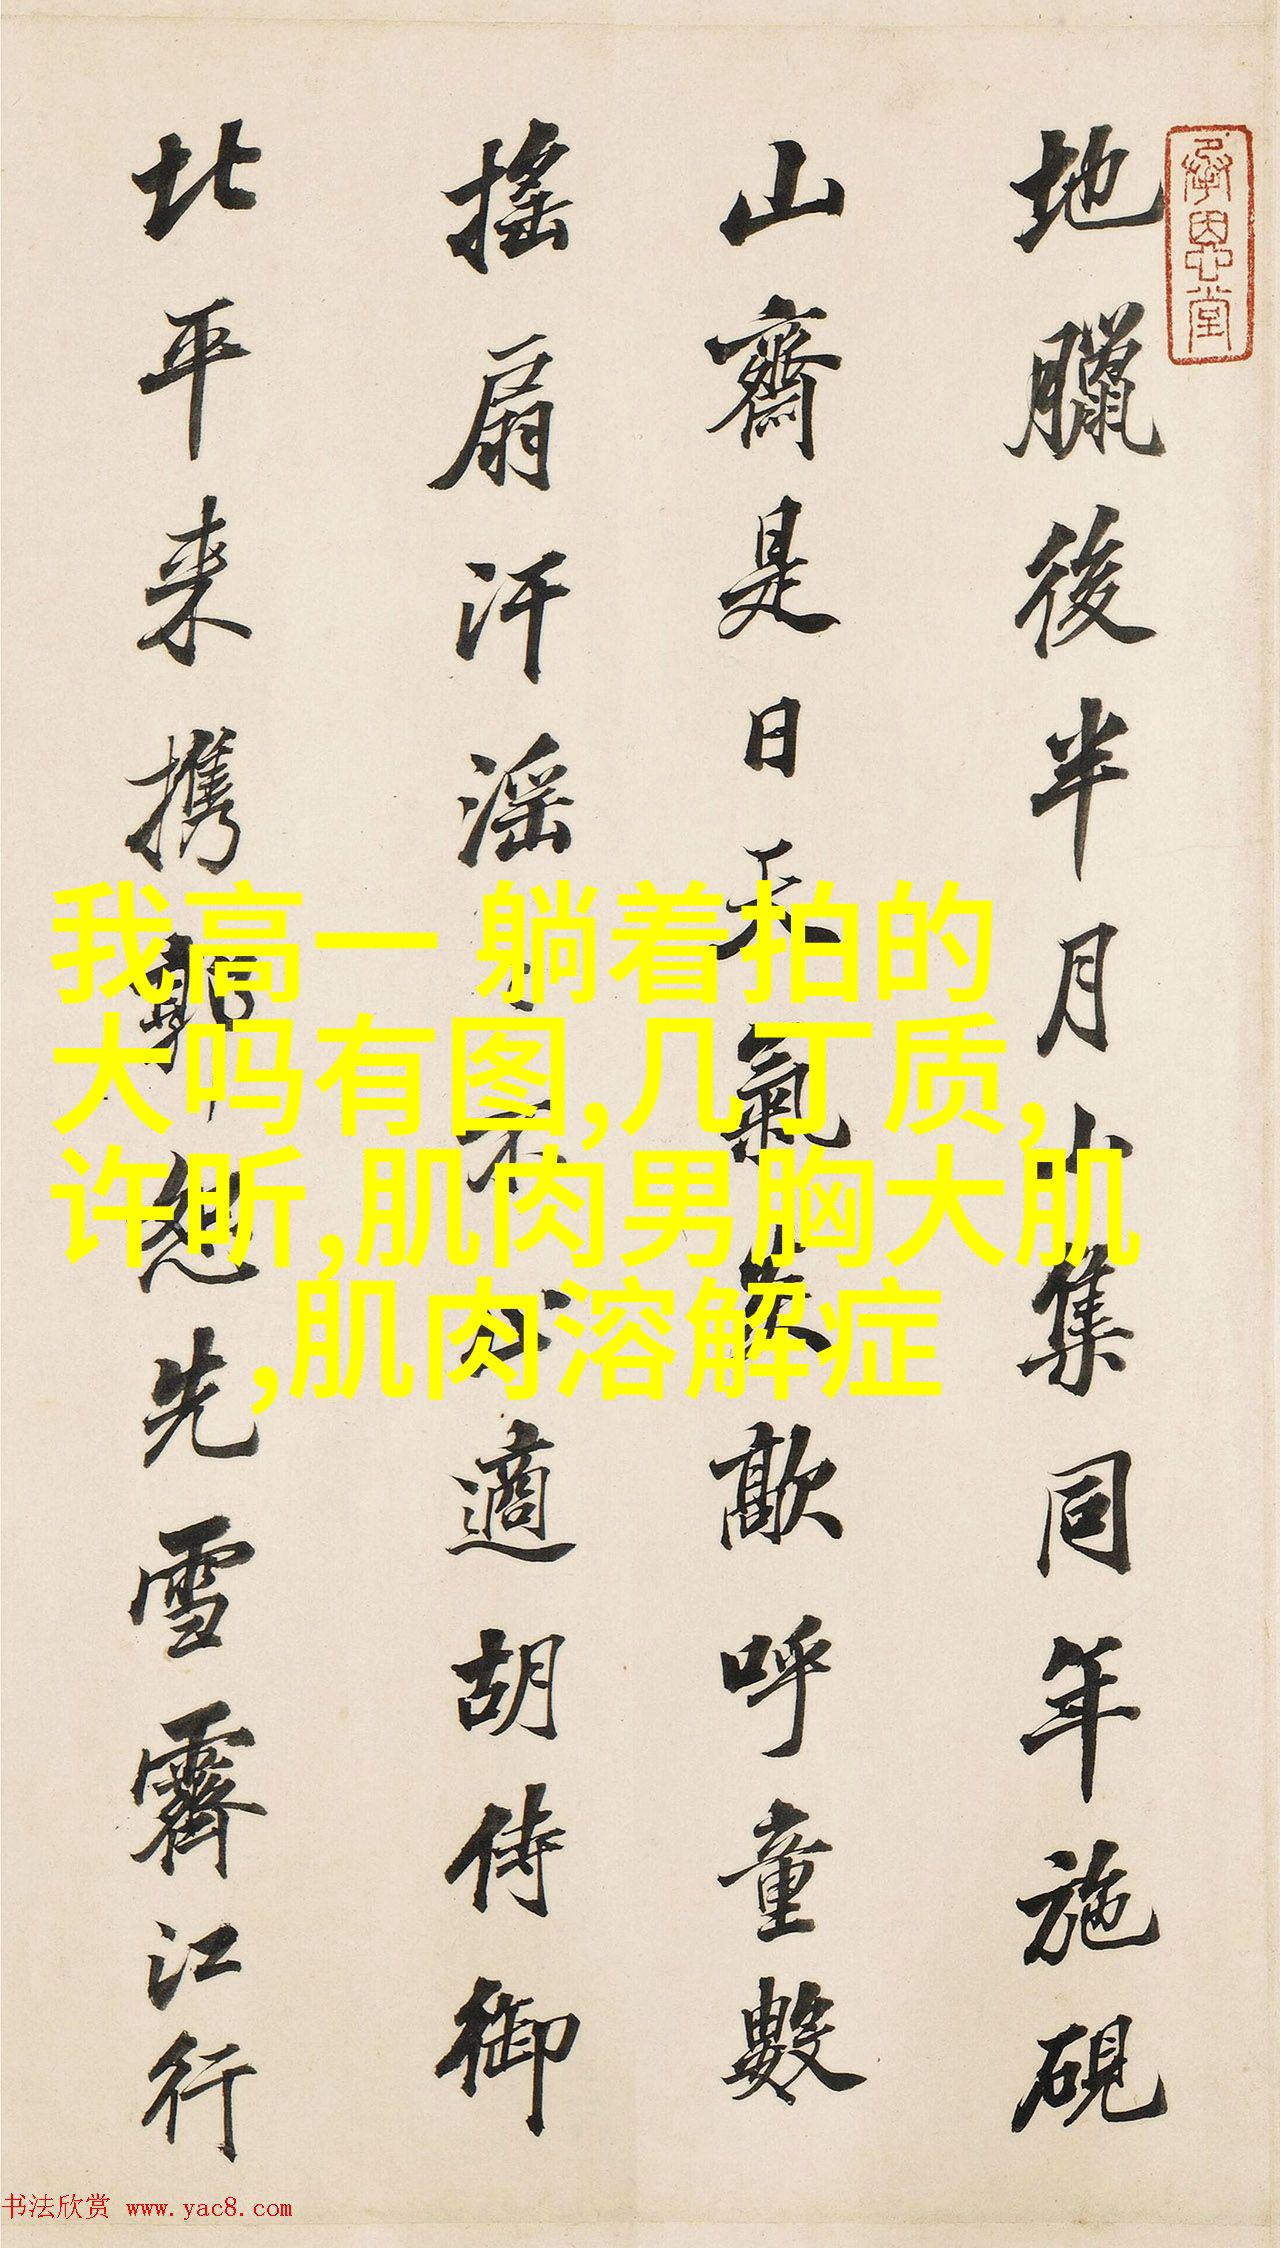 承恩堂
地臘後半月小集同年施硯
山齋是日天氣炎歊呼童數
搖扇汗淫不適胡侍御
北平来携郭恕先雪霽江行
我高一 躺着拍的
大吗有图,几丁质,
许昕,肌肉男胸大肌
,肌肉溶解症
书法欣赏 www.yac8.com